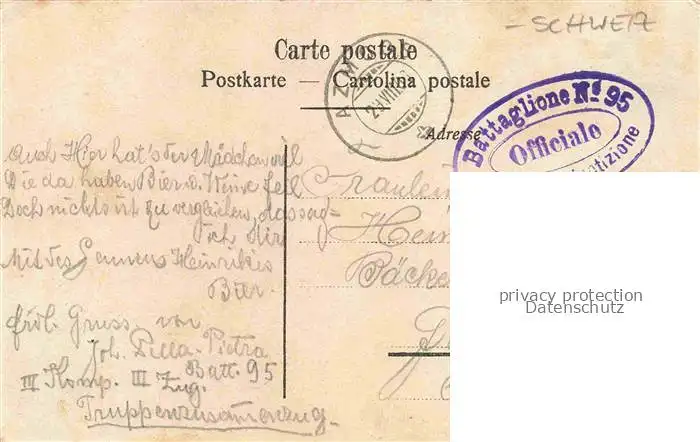 - SCHWEIZ
Carte postale
Postkarte — Cartolina postale
AZMOOS
29.VIII.
Battaglione Nd 95
Officiale
Adresse
Auch Hier hat's der Mädchen viel
Die da haben Bier u. Wein feil
Doch nichts ist zu vergleichen, das sag-
ich dir
Mit des Heinrikes
Bier.
frdl. Gruss von
Joh. Della-Pietra
III Komp. III Zug. Batt. 95
Truppenzusamenzug
Fräulein
Hein
Bäcke
privacy protection
Datenschutz